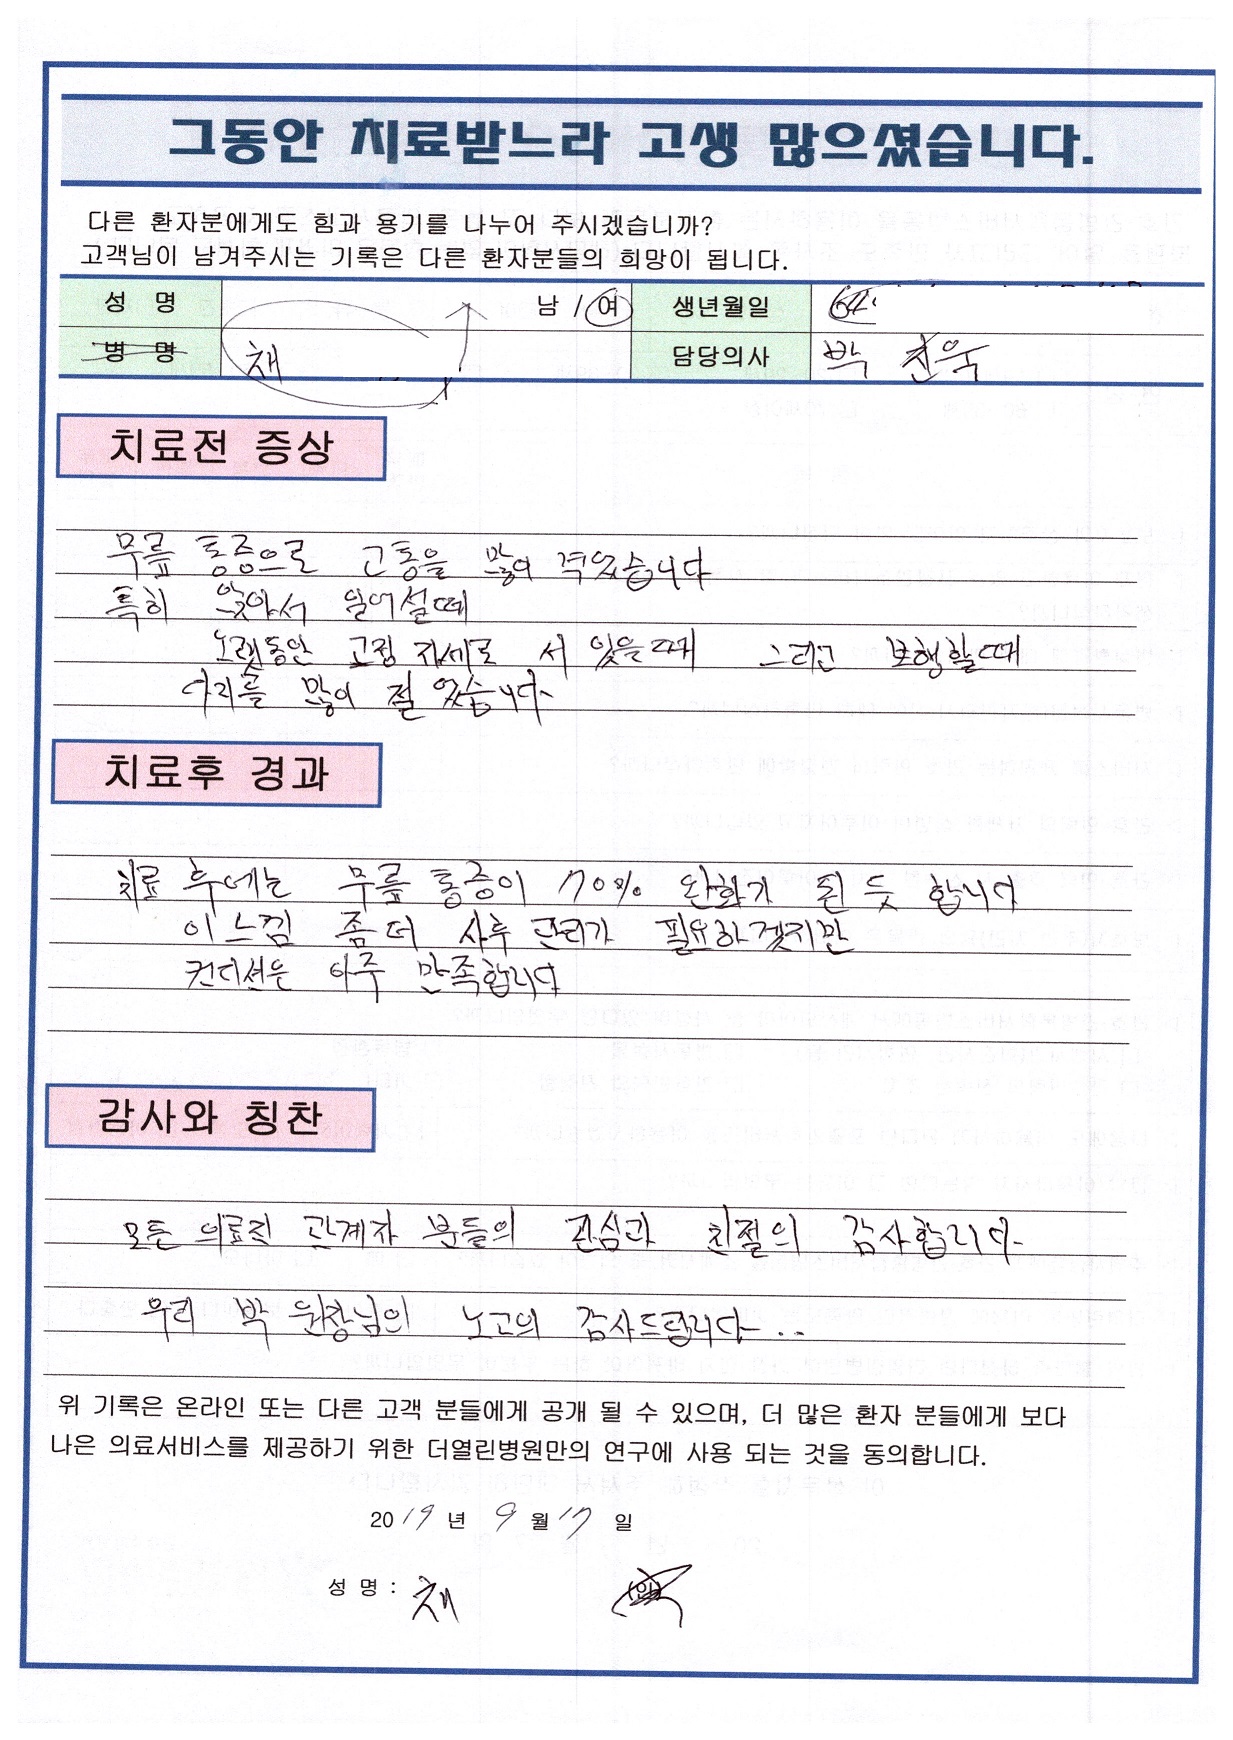 그동안 치료받느라 고생 많으셨습니다.
다른 환자분에게도 힘과 용기를 나누어 주시겠습니까?
고객님이 남겨주시는 기록은 다른 환자분들의 희망이 됩니다.
성 명 남 / 여 생년월일 64.
병 명 채 담당의사 박진욱
치료전 증상
무릎 통증으로 고통을 많이 격었습니다
특히 앉아서 일어설때
오랫동안 고정 자세로 서 있을때 그리고 보행할때
다리를 많이 절었습니다.
치료후 경과
치료 후에는 무릎 통증이 70% 완화가 된 듯 합니다
이 느낌 좀 더 사후 관리가 필요하겠지만
컨디션은 아주 만족합니다
감사와 칭찬
모든 의료진 관계자 분들의 관심과 친절의 감사합니다.
우리 박 원장님의 노고의 감사드립니다...
위 기록은 온라인 또는 다른 고객 분들에게 공개 될 수 있으며, 더 많은 환자 분들에게 보다
나은 의료서비스를 제공하기 위한 더열린병원만의 연구에 사용 되는 것을 동의합니다.
2019 년 9 월 17 일
성 명 : 채 (인)